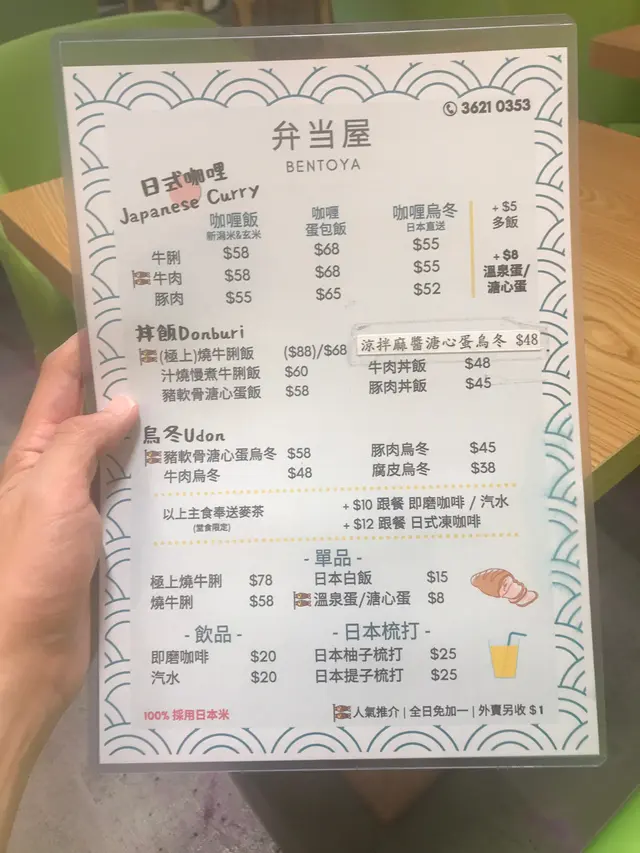 3621 0353
弁当屋
BENTOYA
日式咖喱
Japanese Curry
咖喱飯 咖喱 咖喱烏冬
新潟米&玄米 蛋包飯 日本直送
牛脷 $58 $68 $55
牛肉 $58 $68 $55
豚肉 $55 $65 $52
+ $5
多飯
+ $8
溫泉蛋/
溏心蛋
丼飯Donburi
(極上)燒牛脷飯 ($88)/$68 涼拌麻醬溏心蛋烏冬 $48
汁燒慢煮牛脷飯 $60 牛肉丼飯 $48
豬軟骨溏心蛋飯 $58 豚肉丼飯 $45
烏冬Udon
豬軟骨溏心蛋烏冬 $58 豚肉烏冬 $45
牛肉烏冬 $48 腐皮烏冬 $38
以上主食奉送麥茶
(堂食限定)
+ $10 跟餐 即磨咖啡 / 汽水
+ $12 跟餐 日式凍咖啡
- 單品 -
極上燒牛脷 $78 日本白飯 $15
燒牛脷 $58 溫泉蛋/溏心蛋 $8
- 飲品 - - 日本梳打 -
即磨咖啡 $20 日本柚子梳打 $25
汽水 $20 日本提子梳打 $25
100% 採用日本米 人氣推介 | 全日免加一 | 外賣另收 $1